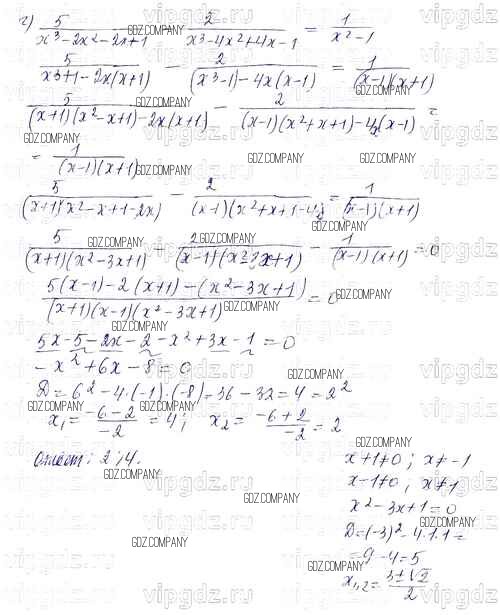 г) 5/(x³-2x²-2x+1) - 2/(x³-4x²+4x-1) = 1/(x²-1)
5/(x³+1-2x(x+1)) - 2/((x³-1)-4x(x-1)) = 1/((x-1)(x+1))
5/((x+1)(x²-x+1)-2x(x+1)) - 2/((x-1)(x²+x+1)-4x(x-1)) =
= 1/((x-1)(x+1))
5/((x+1)(x²-x+1-2x)) - 2/((x-1)(x²+x+1-4x)) = 1/((x-1)(x+1))
5/((x+1)(x²-3x+1)) - 2/((x-1)(x²-3x+1)) - 1/((x-1)(x+1)) = 0
(5(x-1)-2(x+1)-(x²-3x+1))/((x+1)(x-1)(x²-3x+1)) = 0
5x-5-2x-2-x²+3x-1=0
-x²+6x-8=0
D=6²-4·(-1)·(-8)=36-32=4=2²
x₁=(-6-2)/(-2)=4; x₂=(-6+2)/(-2)=2
Ответ: 2;4.
x+1≠0; x≠-1
x-1≠0, x≠1
x²-3x+1=0
D=(-3)²-4·1·1=
=9-4=5
x₁,₂=(3±√2)/2
GDZ.COMPANY
vipgdz.ru